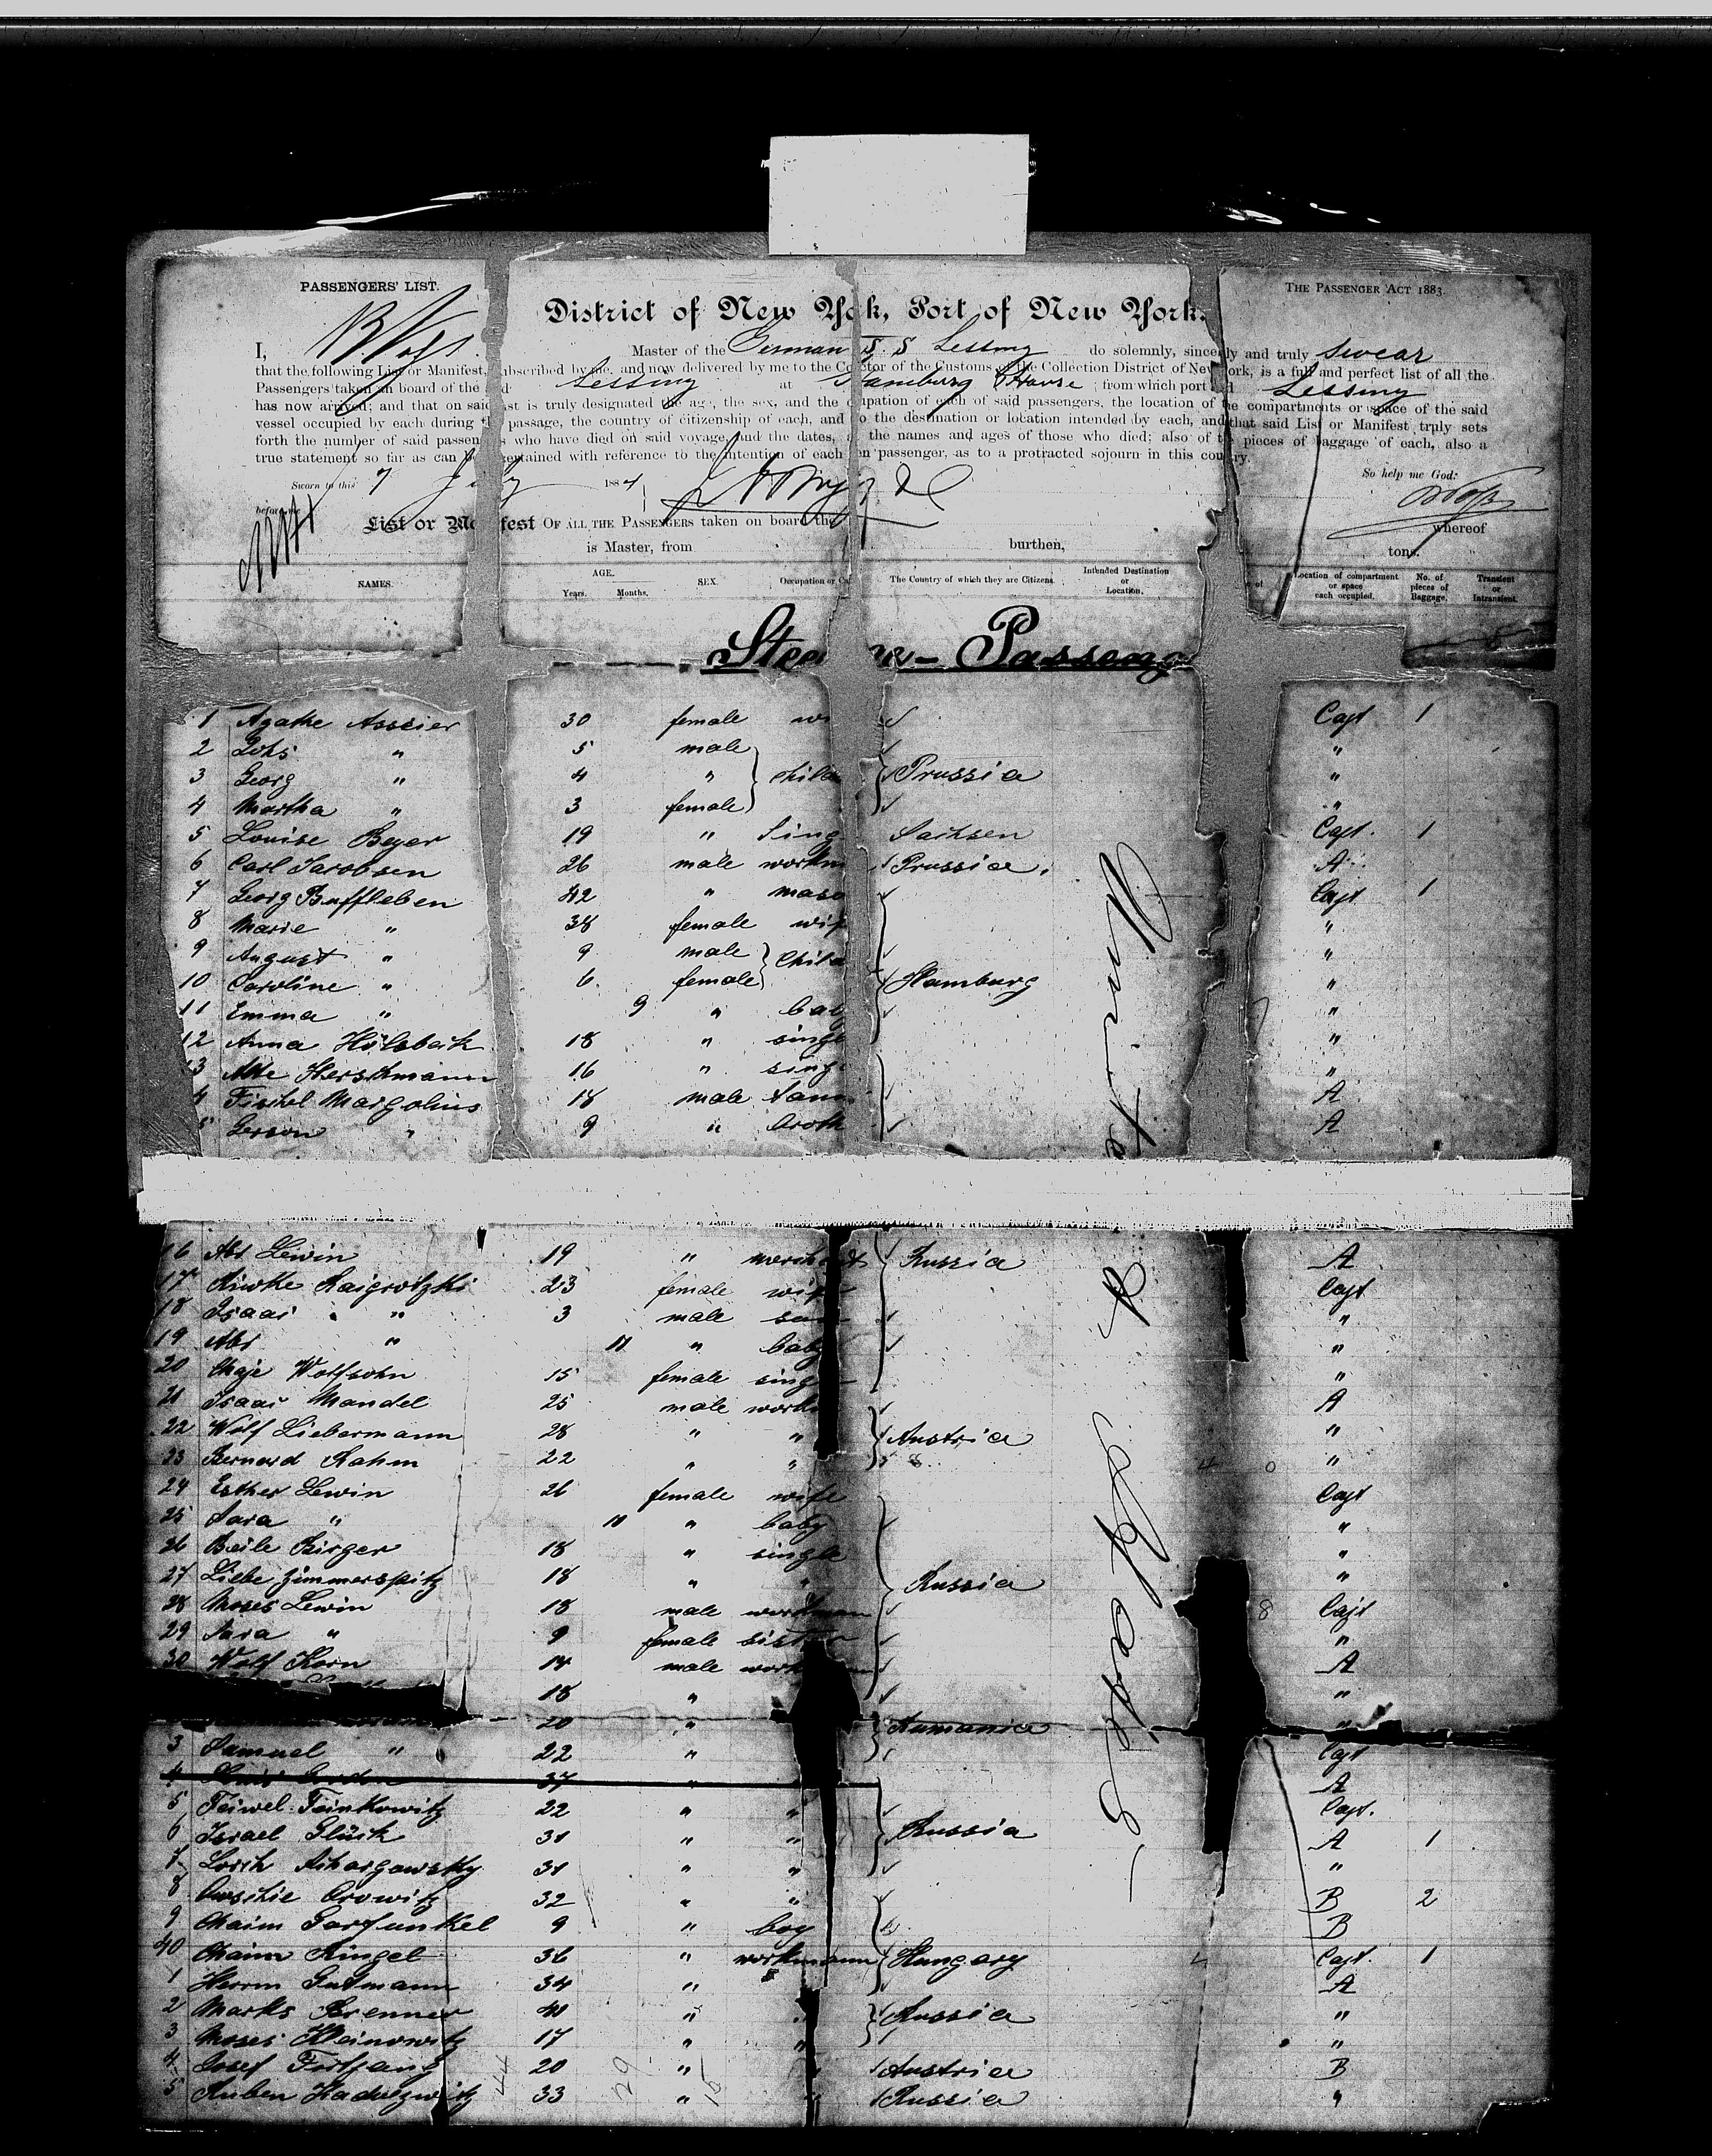 PASSENGERS' LIST.
THE PASSENGER ACT 1883.
District of New York, Port of New York.
I, Master of the German S. S. Lessing do solemnly, sincerely and truly swear
that the following List or Manifest, subscribed by me, and now delivered by me to the Collector of the Customs of the Collection District of New York, is a full and perfect list of all the
Passengers taken on board of the said Lessing at Hamburg & Havre from which port Lessing
has now arrived; and that on said list is truly designated the age, the sex, and the occupation of each of said passengers, the location of the compartments or space of the said
vessel occupied by each during the passage, the country of citizenship of each, and also the destination or location intended by each, and that said List or Manifest truly sets
forth the number of said passengers who have died on said voyage, and the dates, the names and ages of those who died; also of the pieces of baggage of each, also a
true statement so far as can be ascertained with reference to the intention of each passenger, as to a protracted sojourn in this country.
Sworn to this 7 July 1884
So help me God:
before me
List or Manifest OF ALL THE PASSENGERS taken on board the
whereof
is Master, from burthen, tons.
NAMES. AGE. Years. Months. SEX. Occupation or The Country of which they are Citizens. Intended Destination or Location. Location of compartment or space each occupied. No. of pieces of Baggage. Transient or Intransient.
Steerage-Passeng
1 Agathe Asseier 30 female Capt 1
2 " 5 male "
3 Georg " 4 " Prussia "
4 Martha " 3 female "
5 Louise Beyer 19 " Sing Sachsen Capt. 1
6 Carl Jacobsen 26 male workm Prussia. A
7 Georg Buffleben 42 " maso Capt 1
8 Marie " 38 female wif "
9 August " 9 male Child "
10 Caroline " 6 female Hamburg "
11 Emma " 9 " bab "
12 Anna 18 " single "
13 Herschmann 16 " sing "
4 Fischel Margolius 18 male A
5 Gerson " 9 " broth A
16 Abr Lewin 19 " merchant Russia A
17 Riwke 23 female wife Capt
18 Isaac " 3 male son "
19 Abr " 11 " baby "
20 Chaje Wolfsohn 15 female single "
21 Isaac Mandel 25 male workm A
22 Wolf Liebermann 28 " " Austria "
23 Bernard Rahm 22 " " "
24 Esther Lewin 26 female wife Capt
25 Sara " 11 " baby "
26 Beile Birger 18 " single "
27 Liebe Zimmerspitz 18 " " Russia "
28 Moses Lewin 18 male workman Capt
29 Sara " 9 female sister "
30 Wolf Korn 14 male workman A
18 " "
20 " Rumania "
3 Samuel " 22 " Capt
4 Gordon 37 " A
5 Feiwel Fainkowitz 22 " " Capt.
6 Israel Glück 31 " " Russia A 1
7 31 " " "
8 Orowitz 32 " " B 2
9 Chaim Garfunkel 9 " boy B
40 Chaim Ringel 36 " workmann Hungary Capt. 1
1 Herrm Gutmann 34 " A
2 Marks Brenner 41 " " Russia "
3 Moses Kleinowitz 17 " " "
4 Josef Fortgang 20 " " Austria B
5 Ruben 33 " " Russia "